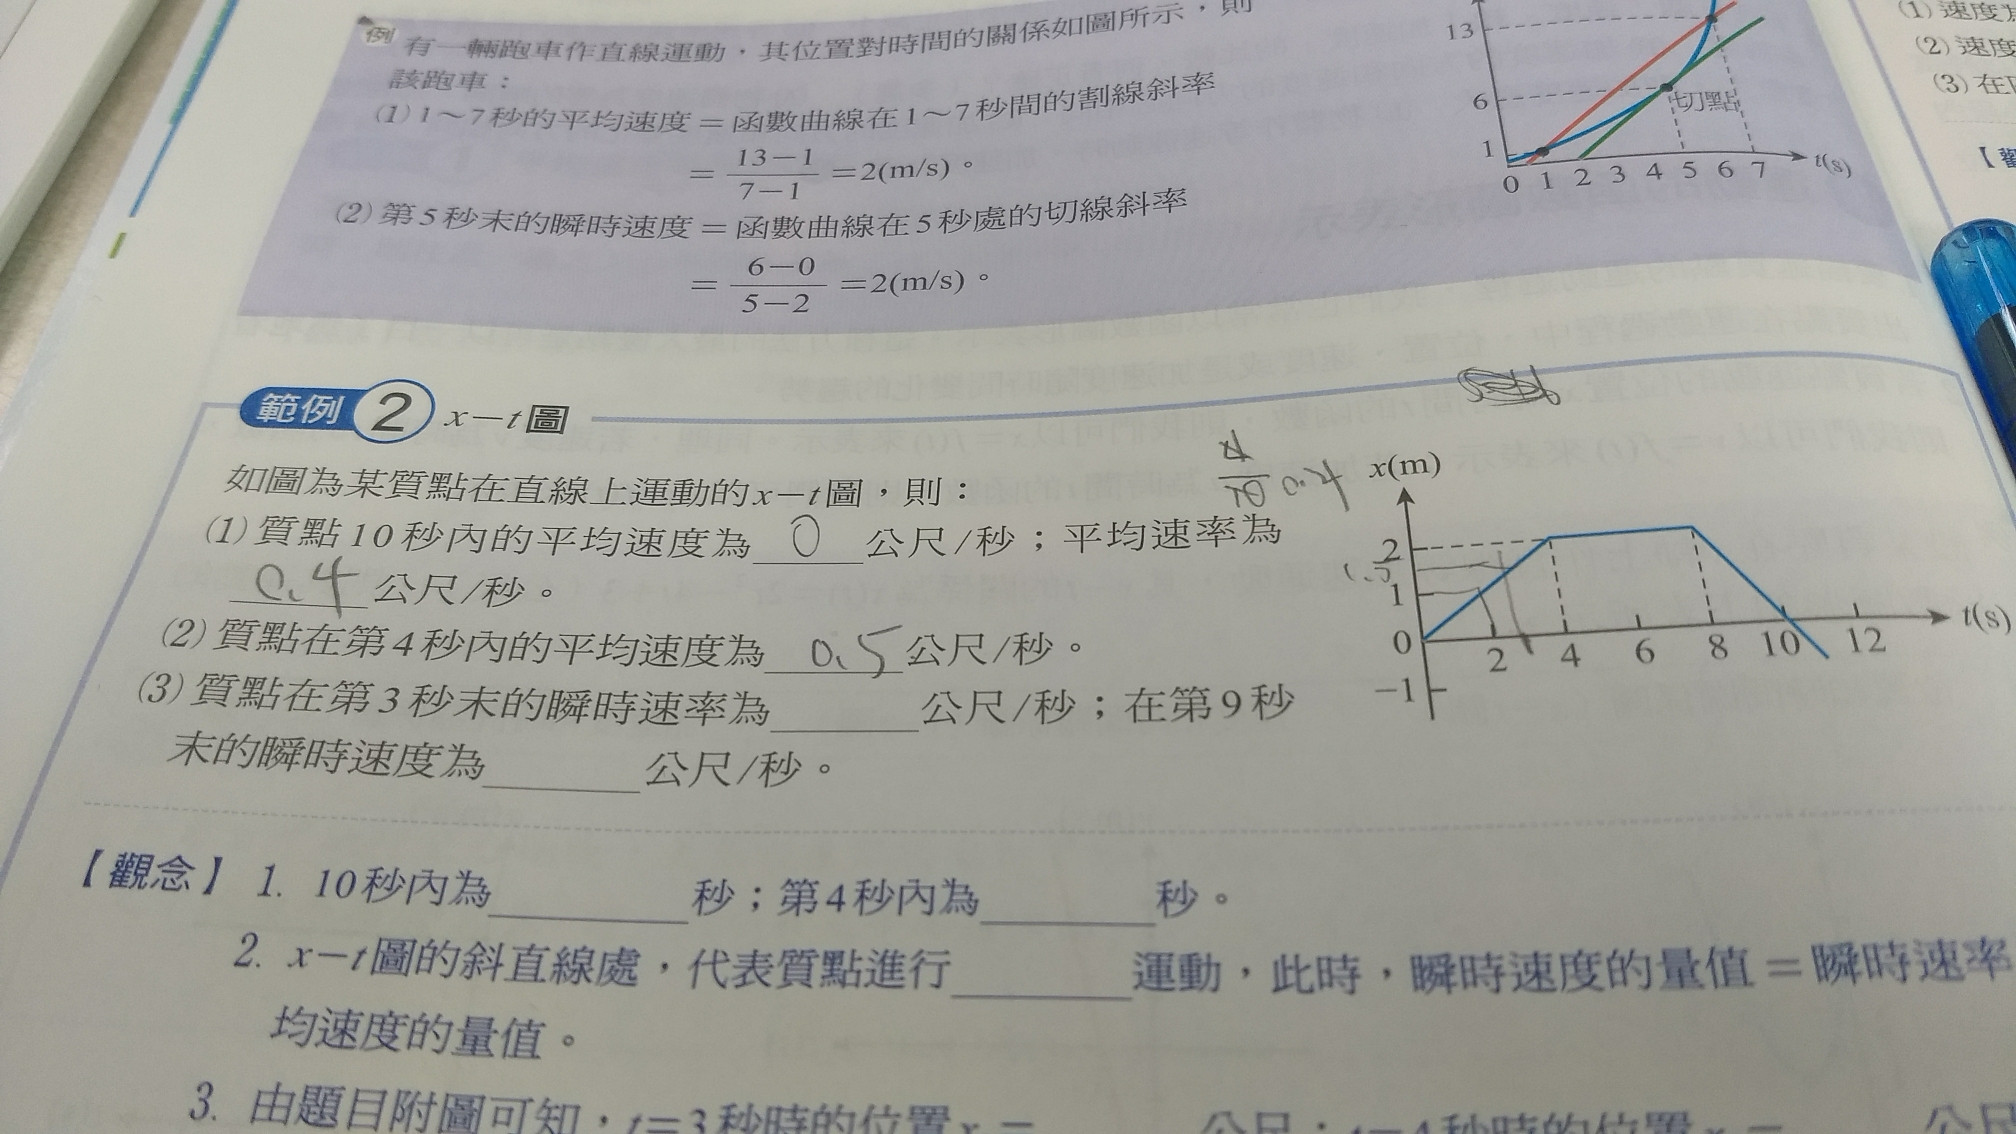 例 有一輛跑車作直線運動,其位置對時間的關係如圖所示,則
該跑車:
(1) 1～7秒的平均速度=函數曲線在1～7秒間的割線斜率
= 13-1 / 7-1 =2(m/s)。
(2) 第5秒末的瞬時速度=函數曲線在5秒處的切線斜率
= 6-0 / 5-2 =2(m/s)。
13
6
1
切點
0 1 2 3 4 5 6 7 t(s)
(1) 速度
(2) 速度
(3) 在
範例 2 x-t圖
如圖為某質點在直線上運動的x-t圖,則:
(1) 質點10秒內的平均速度為 0 公尺/秒;平均速率為
0.4 公尺/秒。
(2) 質點在第4秒內的平均速度為 0.5 公尺/秒。
(3) 質點在第3秒末的瞬時速率為 公尺/秒;在第9秒
末的瞬時速度為 公尺/秒。
4 / 10 0.4
x(m)
2
1.5
1
0
-1
2 4 6 8 10 12 t(s)
【觀念】 1. 10秒內為 秒;第4秒內為 秒。
2. x-t圖的斜直線處,代表質點進行 運動,此時,瞬時速度的量值=瞬時速率
均速度的量值。
3. 由題目附圖可知,t=3秒時的位置x= 公尺;t=4秒時的位置x= 公尺